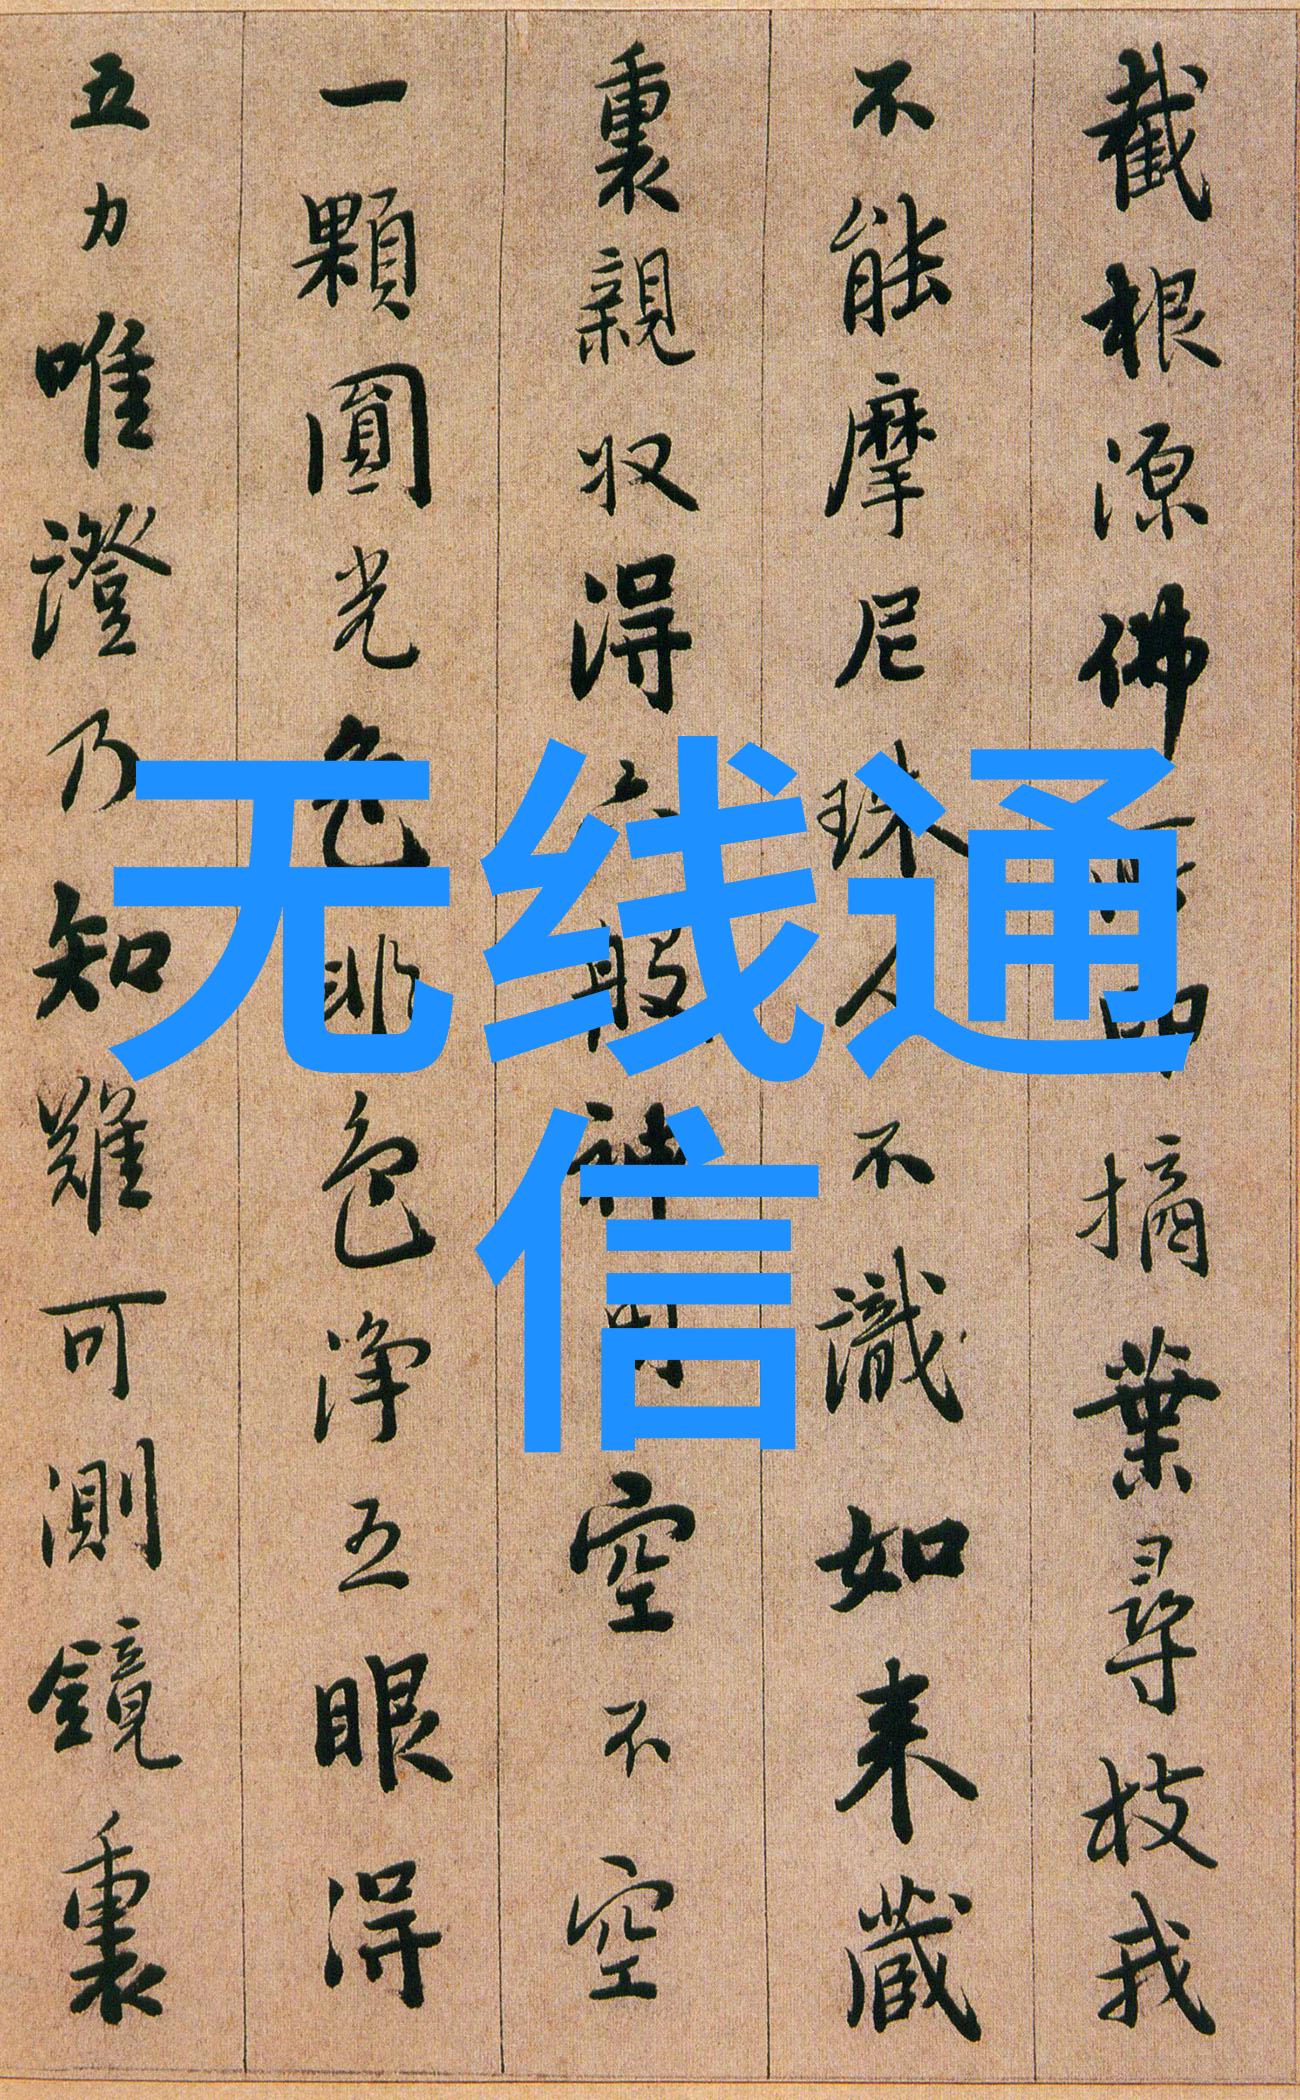 截根源佛所印摘葉尋枝我
不能摩尼珠人不識如来蔵
裏親収得六般神用空不空
一顆圓光色非色淨五眼得
五力唯證乃知難可測鏡裏
无线通
信